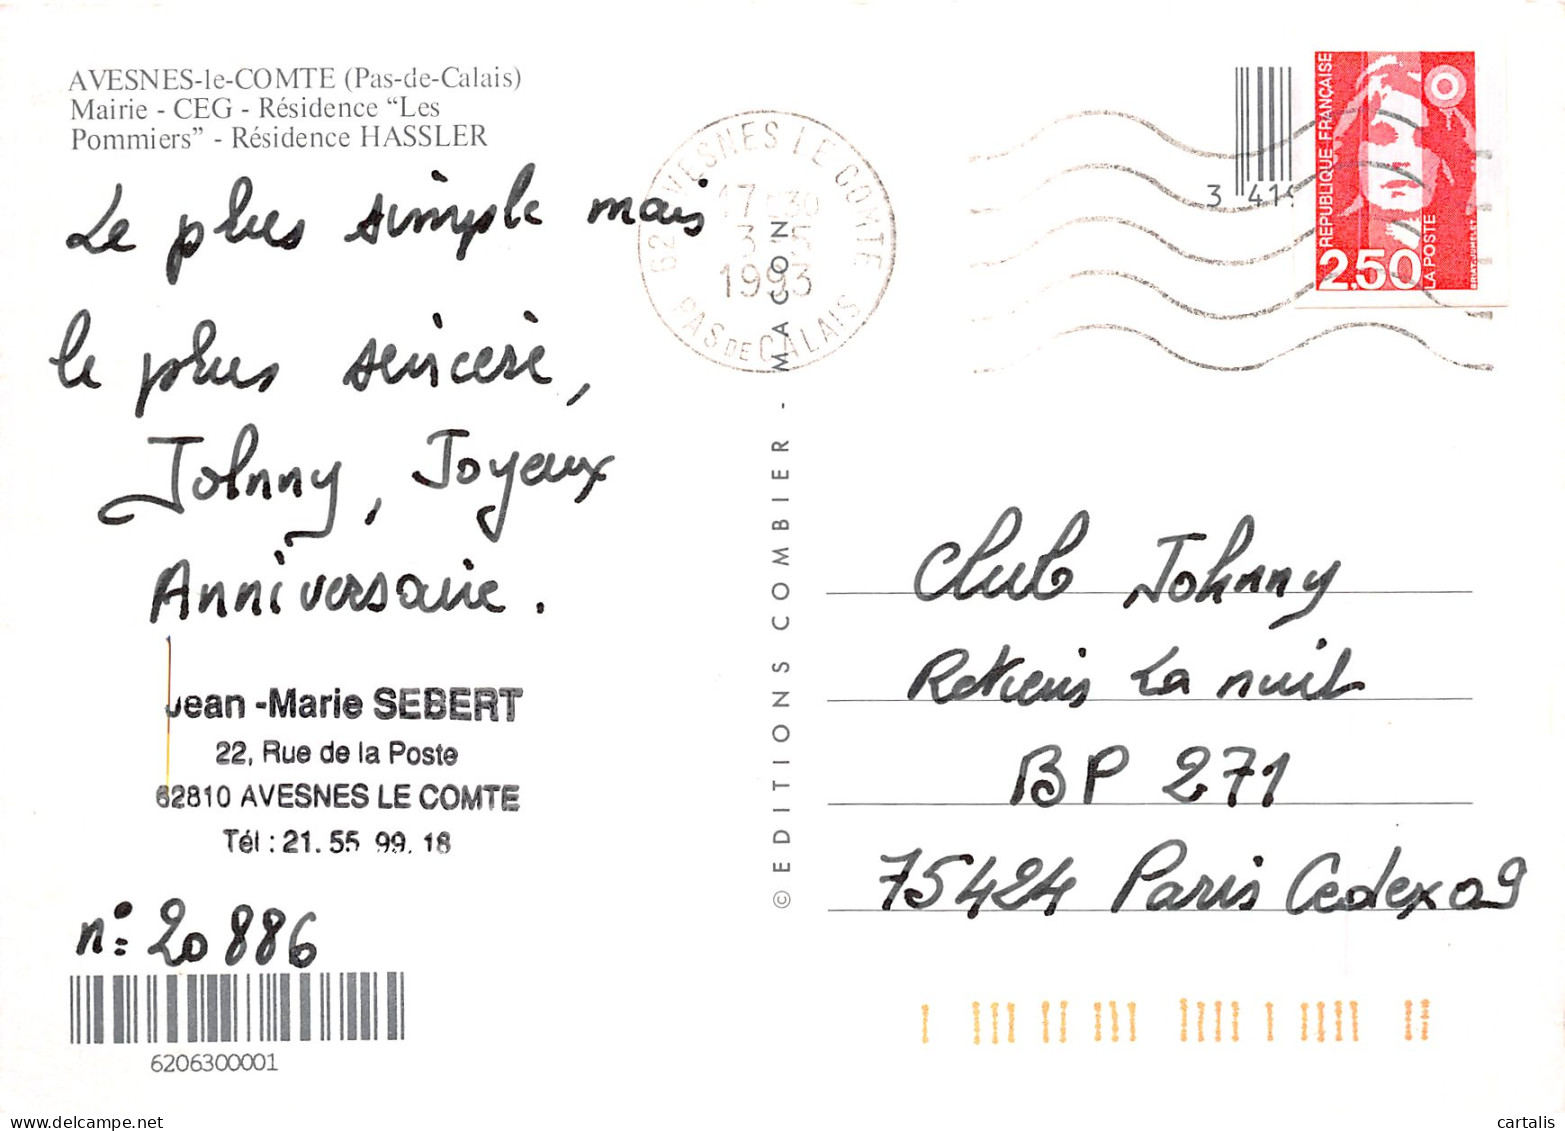 AVESNES-le-COMTE (Pas-de-Calais)
Mairie - CEG - Résidence “Les
Pommiers” - Résidence HASSLER
Le plus simple mais
le plus sincère,
Johnny, Joyeux
Anniversaire.
Jean-Marie SEBERT
22, Rue de la Poste
62810 AVESNES LE COMTE
Tél : 21. 55 99. 18
n°: 20886
6206300001
© EDITIONS COMBIER - MACON
62 AVESNES LE COMTE
17 30
3 5
1993
PAS DE CALAIS
3 419
REPUBLIQUE FRANÇAISE
2,50
LA POSTE
BRIAT-JUMELET
Club Johnny
Retiens La nuit
BP 271
75424 Paris Cedex 09
cartalis
www.delcampe.net